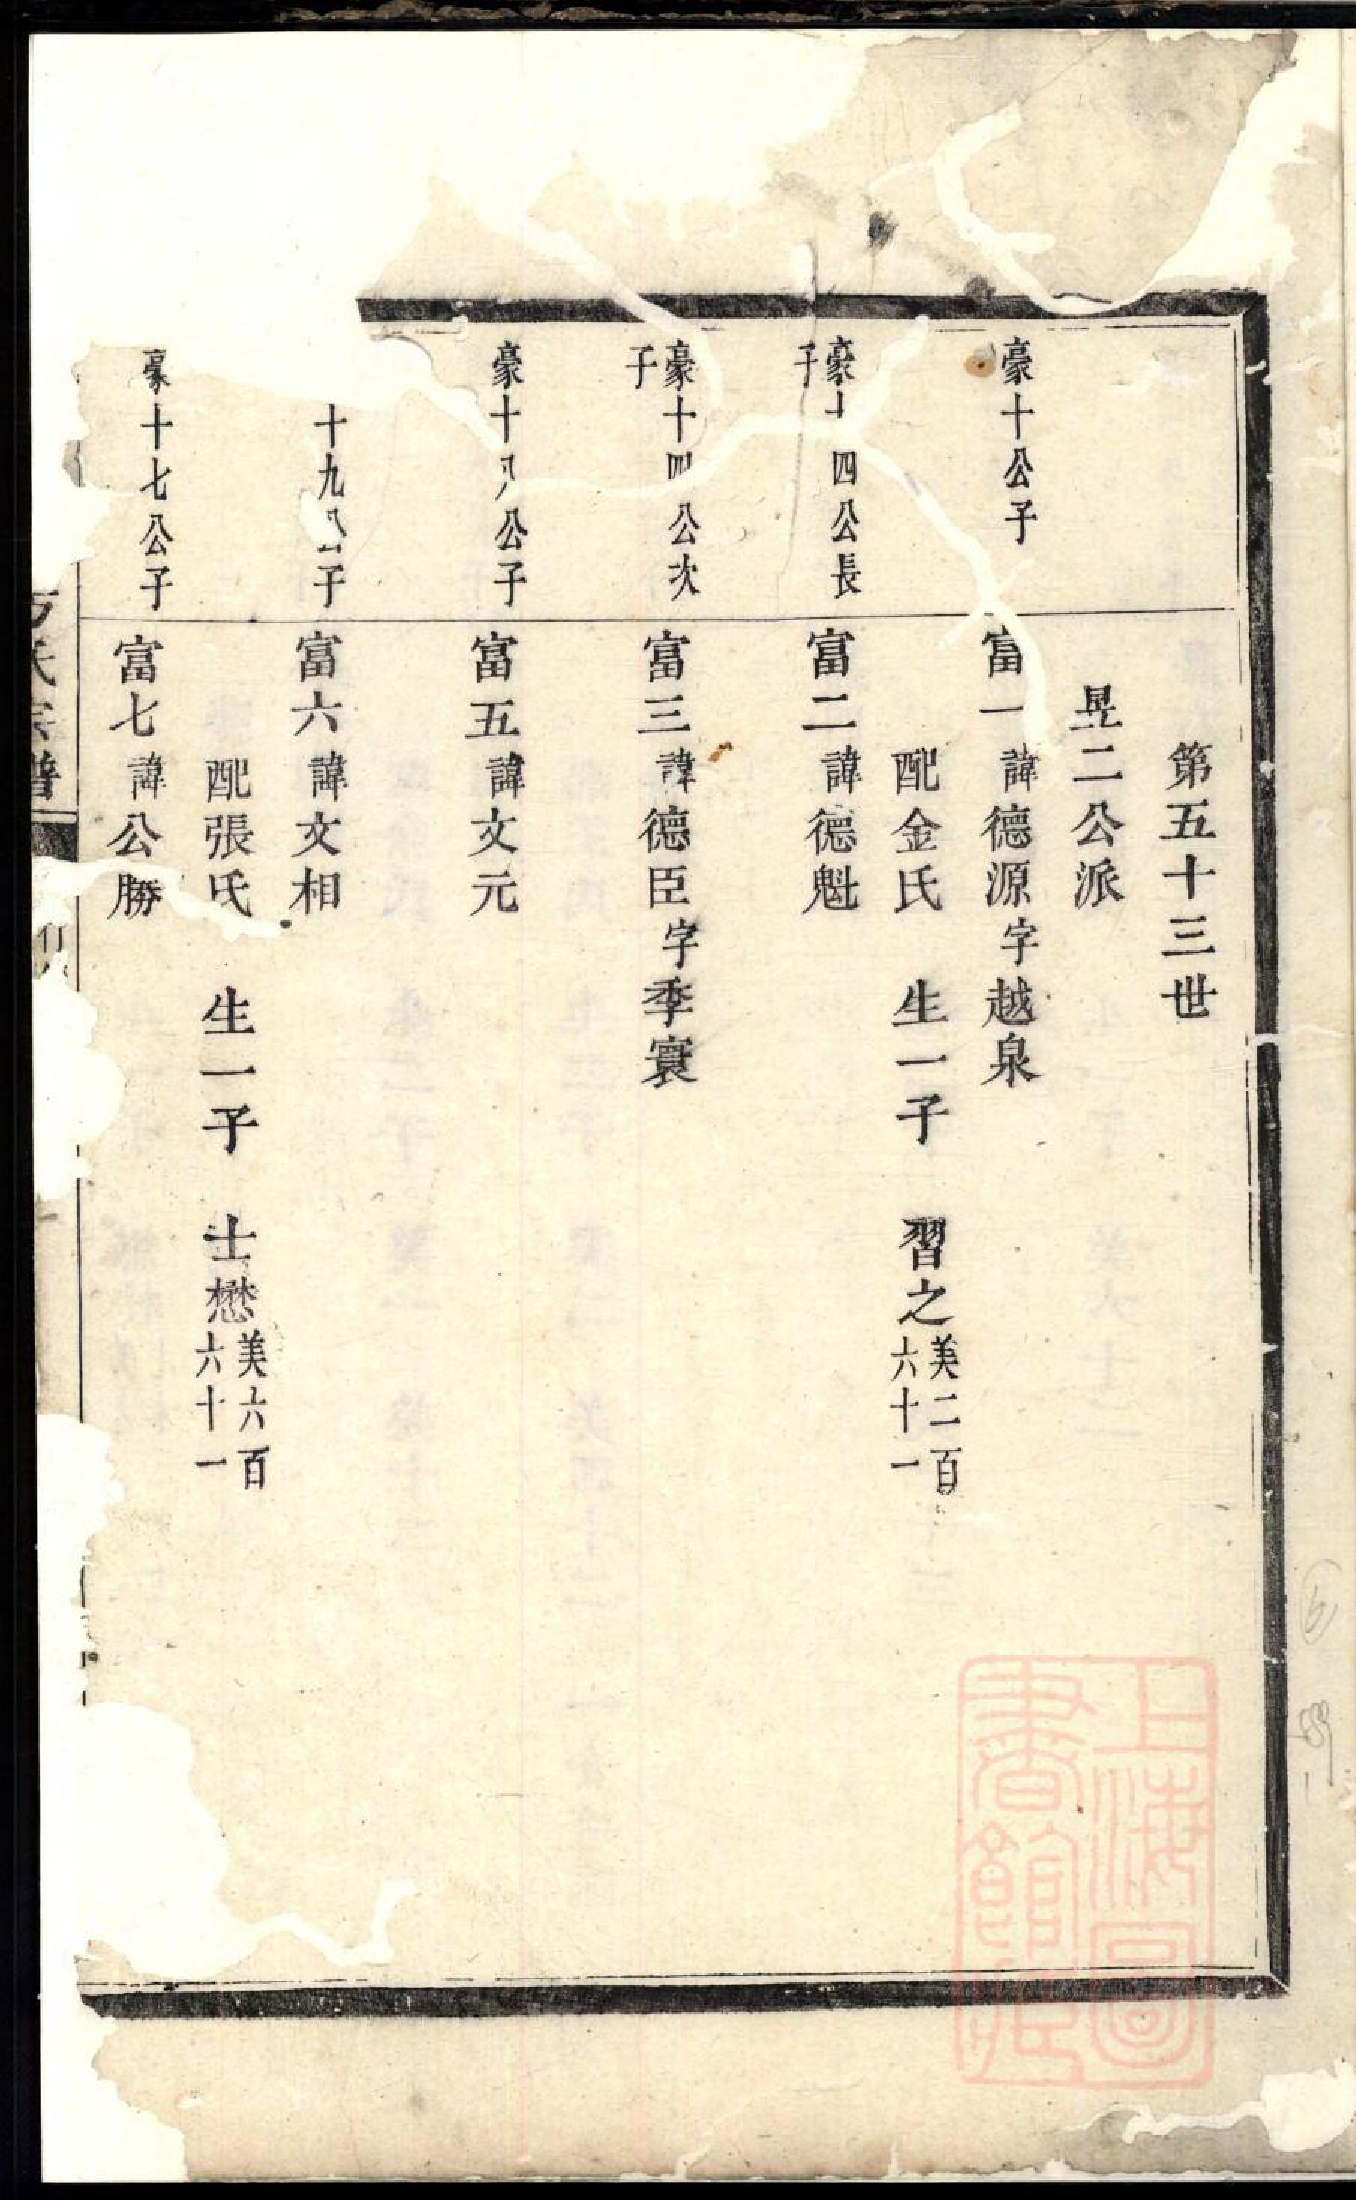 第五十三世
昱二公派
豪十公子
富一諱德源字越泉
配金氏 生一子 習之美二百六十一
豪十四公長子
富二諱德魁
豪十四公次子
富三諱德臣字季寰
豪十八公子
富五諱文元
十九公子
富六諱文相
配張氏 生一子 士懋美六百六十一
豪十七公子
富七諱公勝
氏宗譜
上海圖書館藏